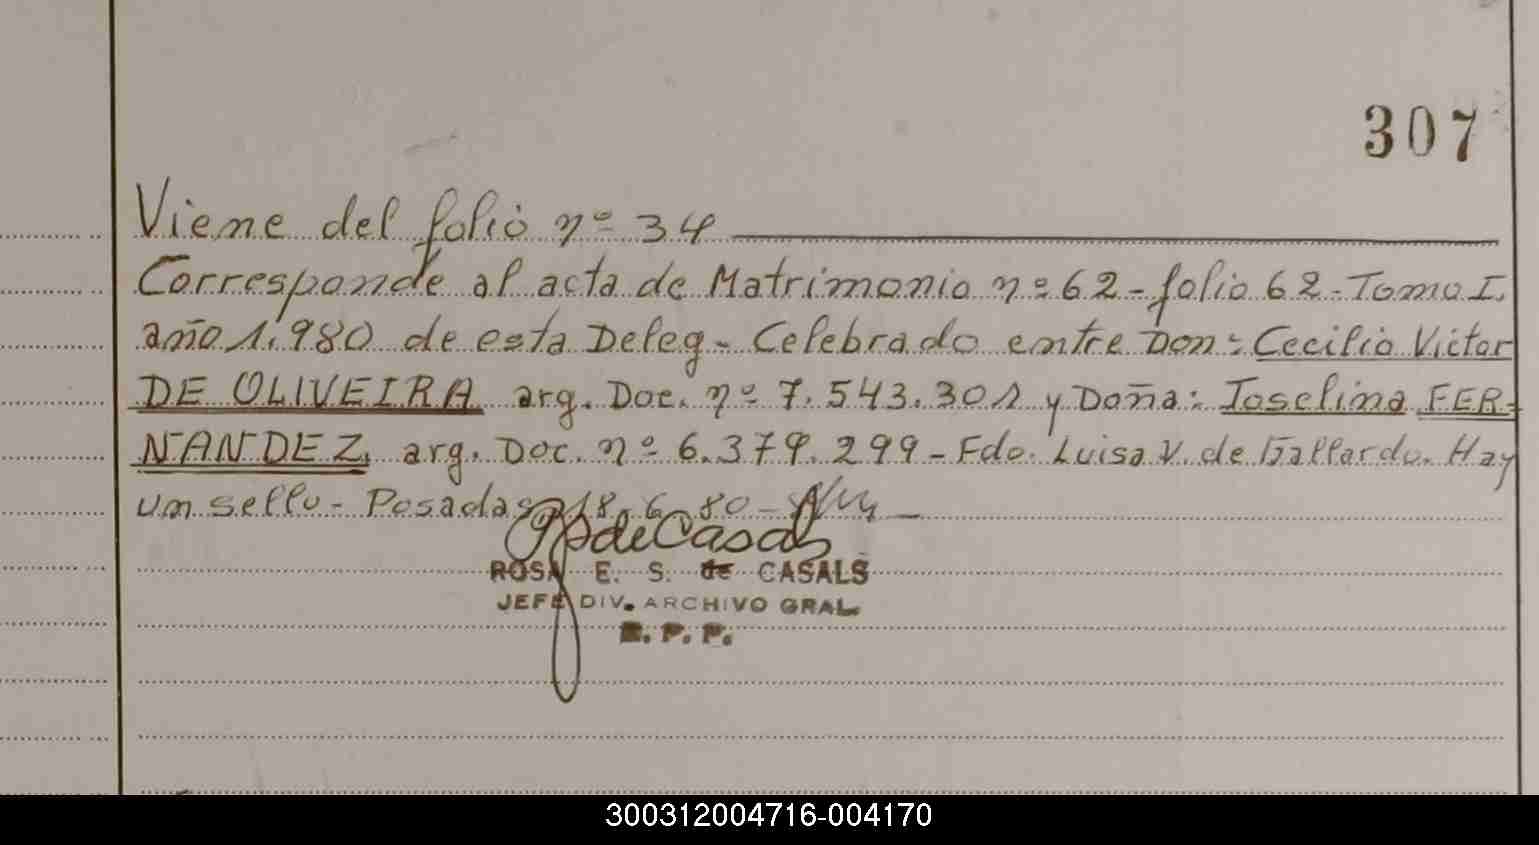 307
Viene del folio nº 34
Corresponde al acta de Matrimonio nº 62 - folio 62 - Tomo I.
año 1.980 de esta Deleg - Celebrado entre Don: Cecilio Victor
DE OLIVEIRA arg. Doc. nº 7.543.301 y Doña: Joselina FER-
NANDEZ, arg. Doc. nº 6.379.299 - Fdo. Luisa V. de Gallardo. Hay
un sello - Posadas 18.6.80 -
de Casals
ROSA E. S. de CASALS
JEFE DIV. ARCHIVO GRAL.
R. P. P.
300312004716-004170